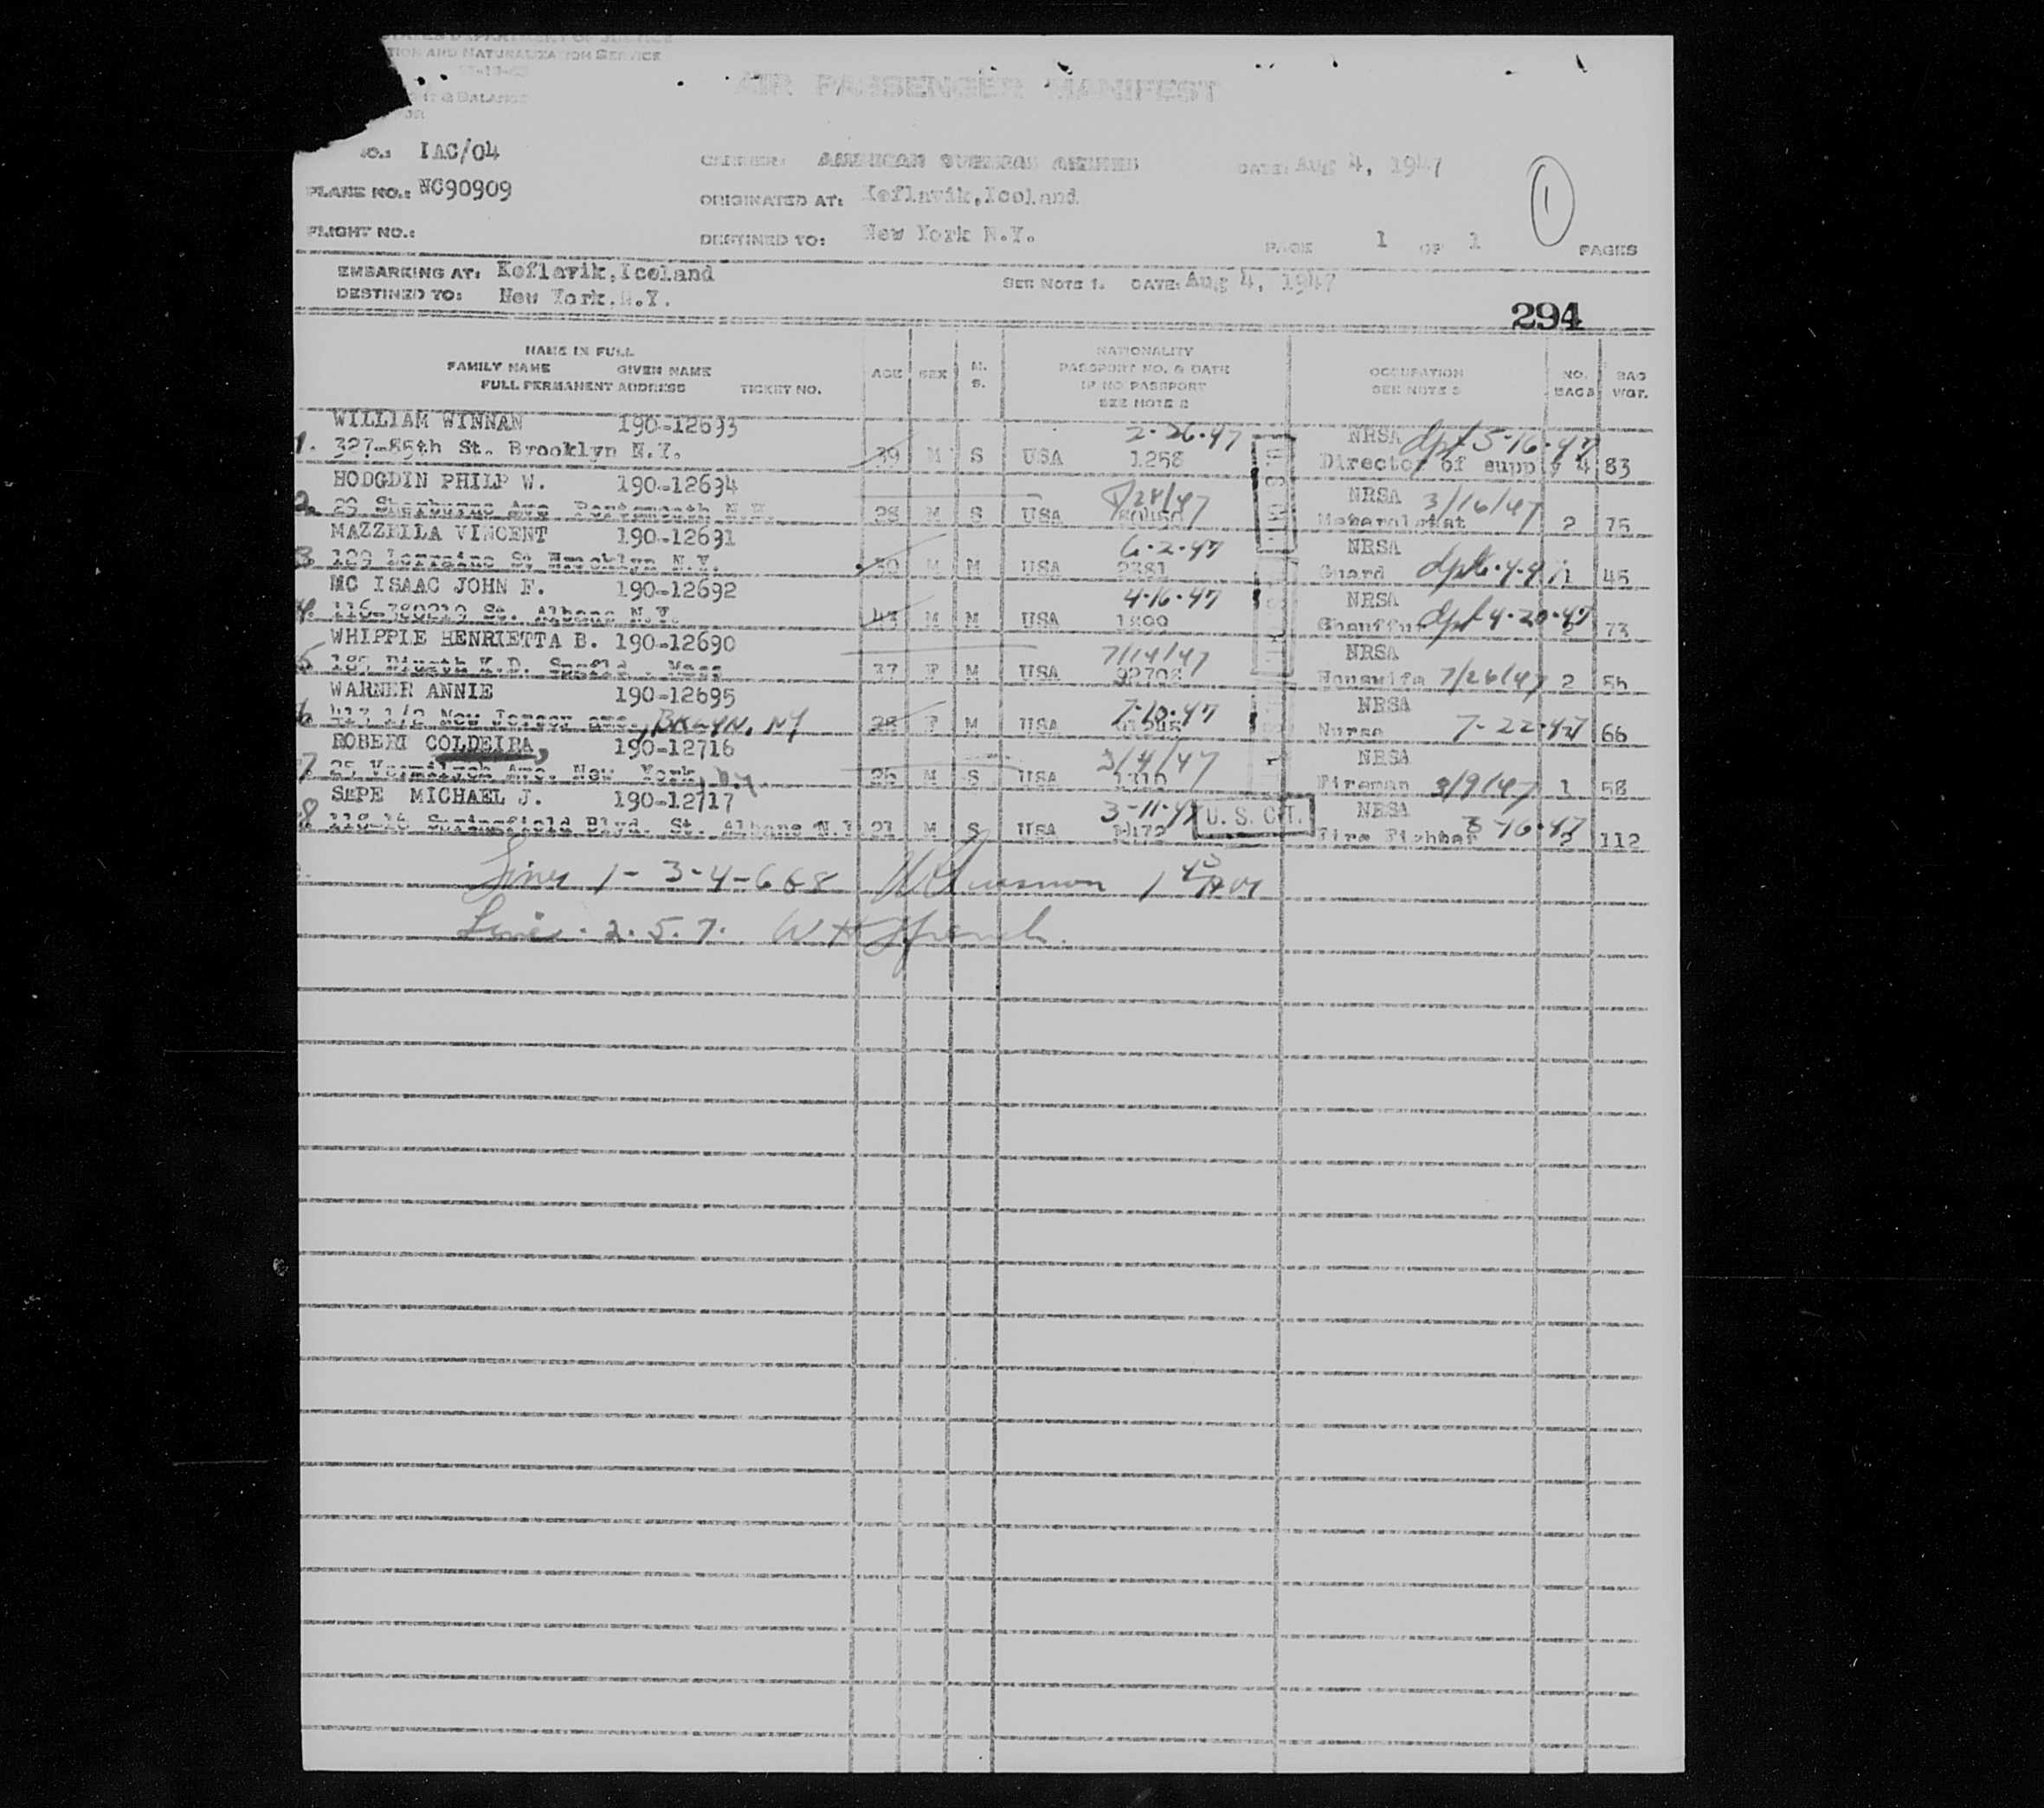 TATES DEPARTMENT OF JUSTICE
TION AND NATURALIZATION SERVICE
& BALANCE
AIR PASSENGER MANIFEST
NO.: IAC/04
CARRIER: AMERICAN OVERSEAS AIRLINES
DATE: Aug 4, 1947
1
PLANE NO.: NC90909
ORIGINATED AT: Keflavik, Iceland
FLIGHT NO.:
DESTINED TO: New York N.Y.
PAGE 1 OF 1 PAGES
EMBARKING AT: Keflavik, Iceland
SEE NOTE 1. DATE: Aug 4, 1947
DESTINED TO: New York. N.Y.
294
NAME IN FULL
FAMILY NAME GIVEN NAME
FULL PERMANENT ADDRESS TICKET NO.
AGE
SEX
M.
S.
NATIONALITY
PASSPORT NO. & DATE
IF NO PASSPORT
SEE NOTE 2
OCCUPATION
SEE NOTE 3
NO.
BAGS
BAG
WGT.
WILLIAM WINNAN 190-12693 2-26-47 NRSA dpt 5-16-47
1. 327-85th St. Brooklyn N.Y. 39 M S USA 1258 Director of supply 4 83
HODGDIN PHILP W. 190-12694 28/47 NRSA 3/16/47
2. 29 Sherburne Ave Portsmouth N.H. 28 M S USA 2 75
MAZZELLA VINCENT 190-12691 6-2-47 NRSA
3 189 Lorraine St Brooklyn N.Y. 30 M M USA 2381 Guard dpt 6-4-47 1 45
MC ISAAC JOHN F. 190-12692 4-16-47 NRSA
4. St. Albans N.Y. 43 M M USA 1800 Chauffur dpt 4-20-47 2 73
WHIPPLE HENRIETTA B. 190-12690 7/14/47 NRSA
5 Spgfld. Mass 37 F M USA 92702 Housewife 7/26/47 2 55
WARNER ANNIE 190-12695 7-10-47 NRSA
6 417 1/2 New Jersey ave., BKLYN, NY 28 F M USA Nurse 7-22-47 66
ROBERT COLDEIRA, 190-12716 3/4/47 NRSA
7 25 Vermilyea Ave. New York, N.Y. 26 M S USA 1310 Fireman 3/9/47 1 58
SEPE MICHAEL J. 190-12717 3-11-47 U.S. CIT. NRSA 3-16-47
8 118-16 Springfield Blvd. St. Albans N.Y 21 M S USA Fire Fighter 2 112
Lines 1-3-4-6&8
Lines. 2.5.7. W H